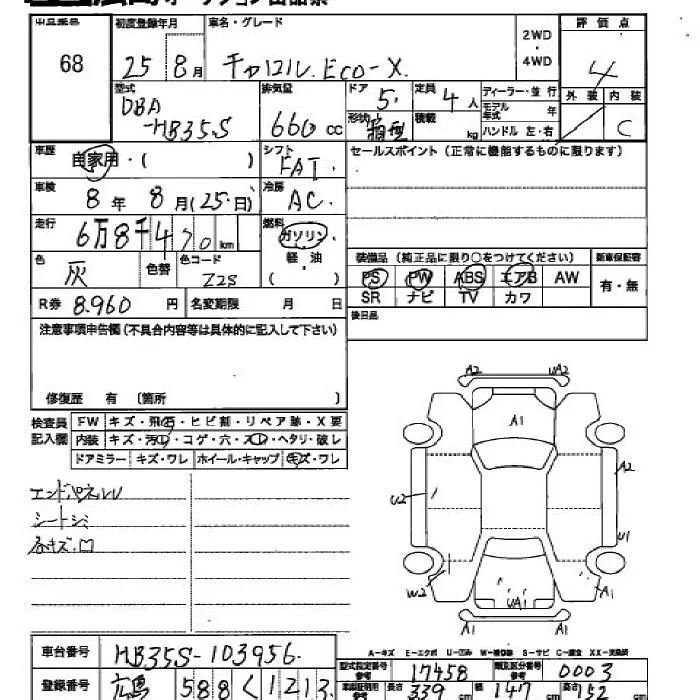 出品番号 初度登録年月 車名・グレード 2WD・4WD 評価点
68 25年8月 キャロル Eco-X 4
型式 排気量 ドア 定員 ディーラー・並行 外装 内装
DBA-HB35S 660cc 5 4人 モデル年式 年 C
形状 箱型 積載 kg ハンドル 左・右
車歴 自家用・( ) シフト FAT セールスポイント(正常に機能するものに限ります)
車検 8年8月(25日) 冷房 AC
走行 6万8千470km 燃料 ガソリン
軽油
( )
色 灰 色替 色コード Z2S 装備品(純正品に限り○をつけてください) 新車保証書
PS PW ABS エアB AW 有・無
SR ナビ TV カワ
R券 8,960円 名変期限 月 日 後日品
注意事項申告欄(不具合内容等は具体的に記入して下さい)
修復歴 有〔箇所 〕
検査員記入欄 FW キズ・飛石・ヒビ割・リペア跡・X要
内装 キズ・汚レ・コゲ・穴・スレ・ヘタリ・破レ
ドアミラー キズ・ワレ ホイール・キャップ キズ・ワレ
エンドパネルU
シートシミ
A2 UA2
A1
A2
U2
U1
W2 A1
UA1
A1 A1
A-キズ E-エクボ U-凹み W-補修跡 S-サビ C-腐食 XX-交換済
車台番号 HB35S-103956
型式指定番号 17458 類別区分番号 0003
登録番号 広島 588 く 1213
長さ 339 cm 幅 147 cm 高さ 152 cm